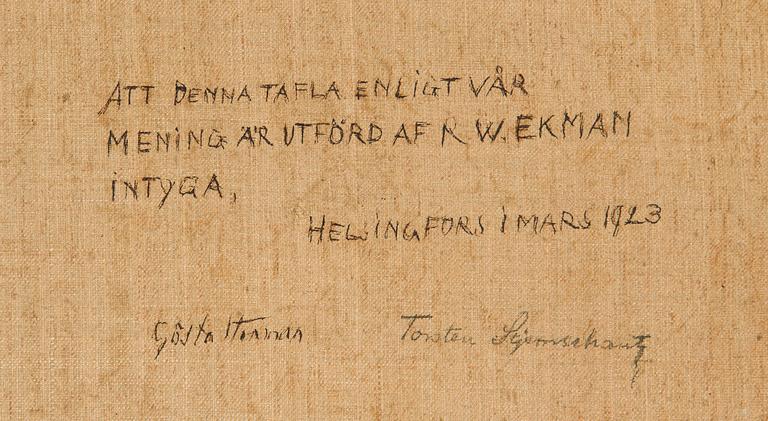 ATT DENNA TAFLA ENLIGT VÅR
MENING ÄR UTFÖRD AF R. W. EKMAN
INTYGA,
HELSINGFORS I MARS 1923
Gösta Stenman Torsten Stjernschantz